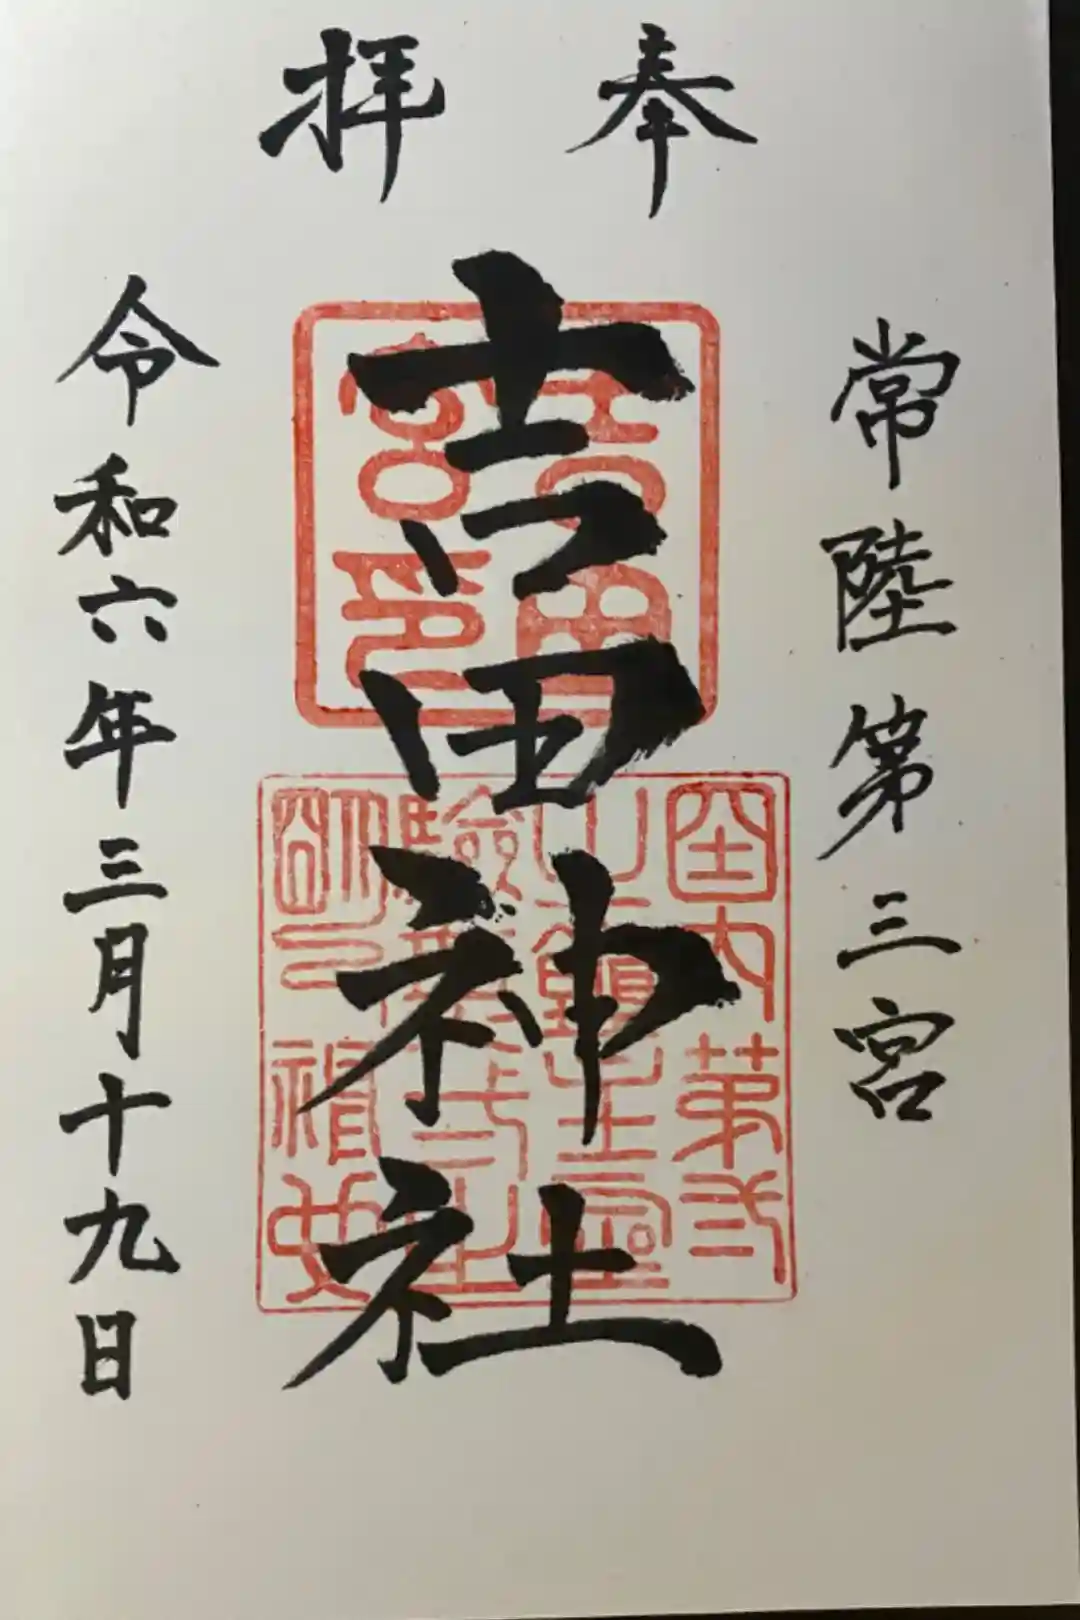 奉拝
常陸第三宮
吉田神社
令和六年三月十九日
吉田
宮印